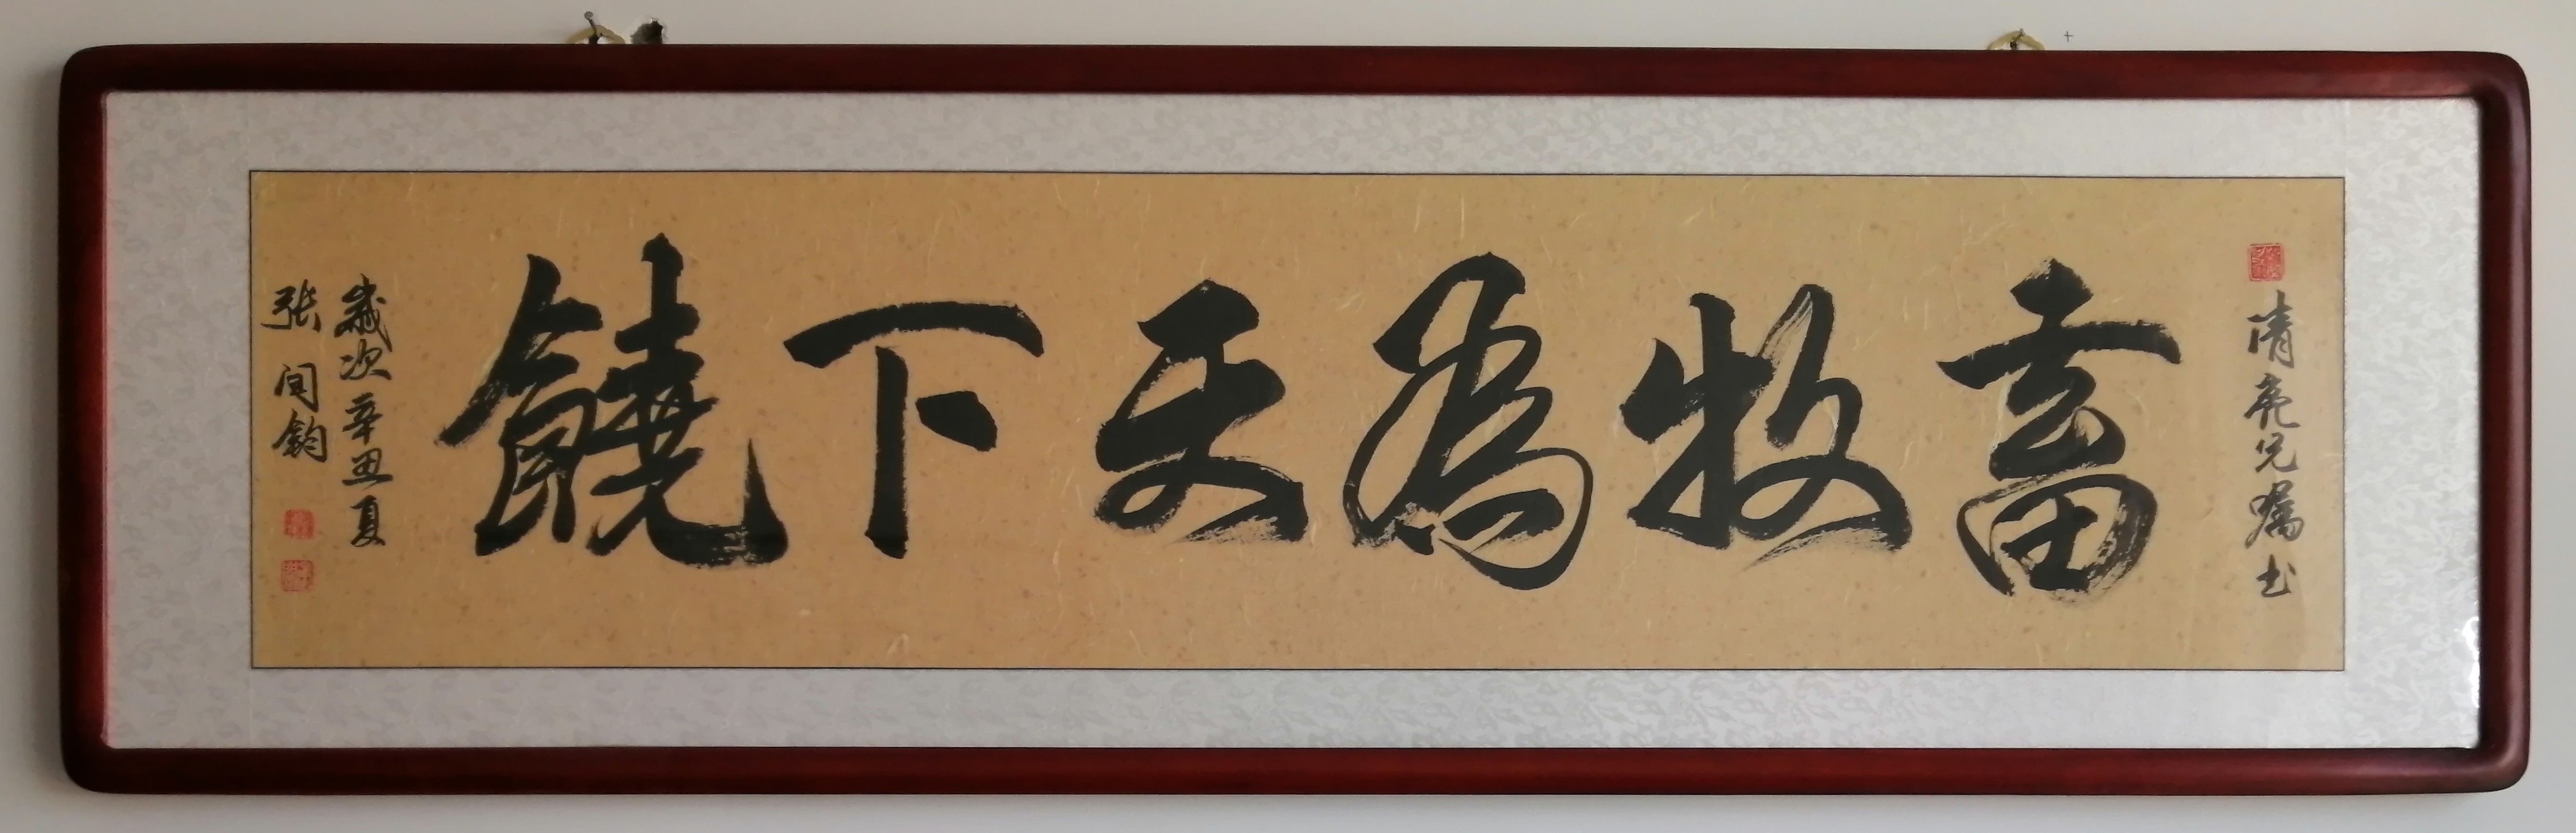 清亮兄嘱书
畜牧為天下饒
歲次辛丑夏
张闻鈞